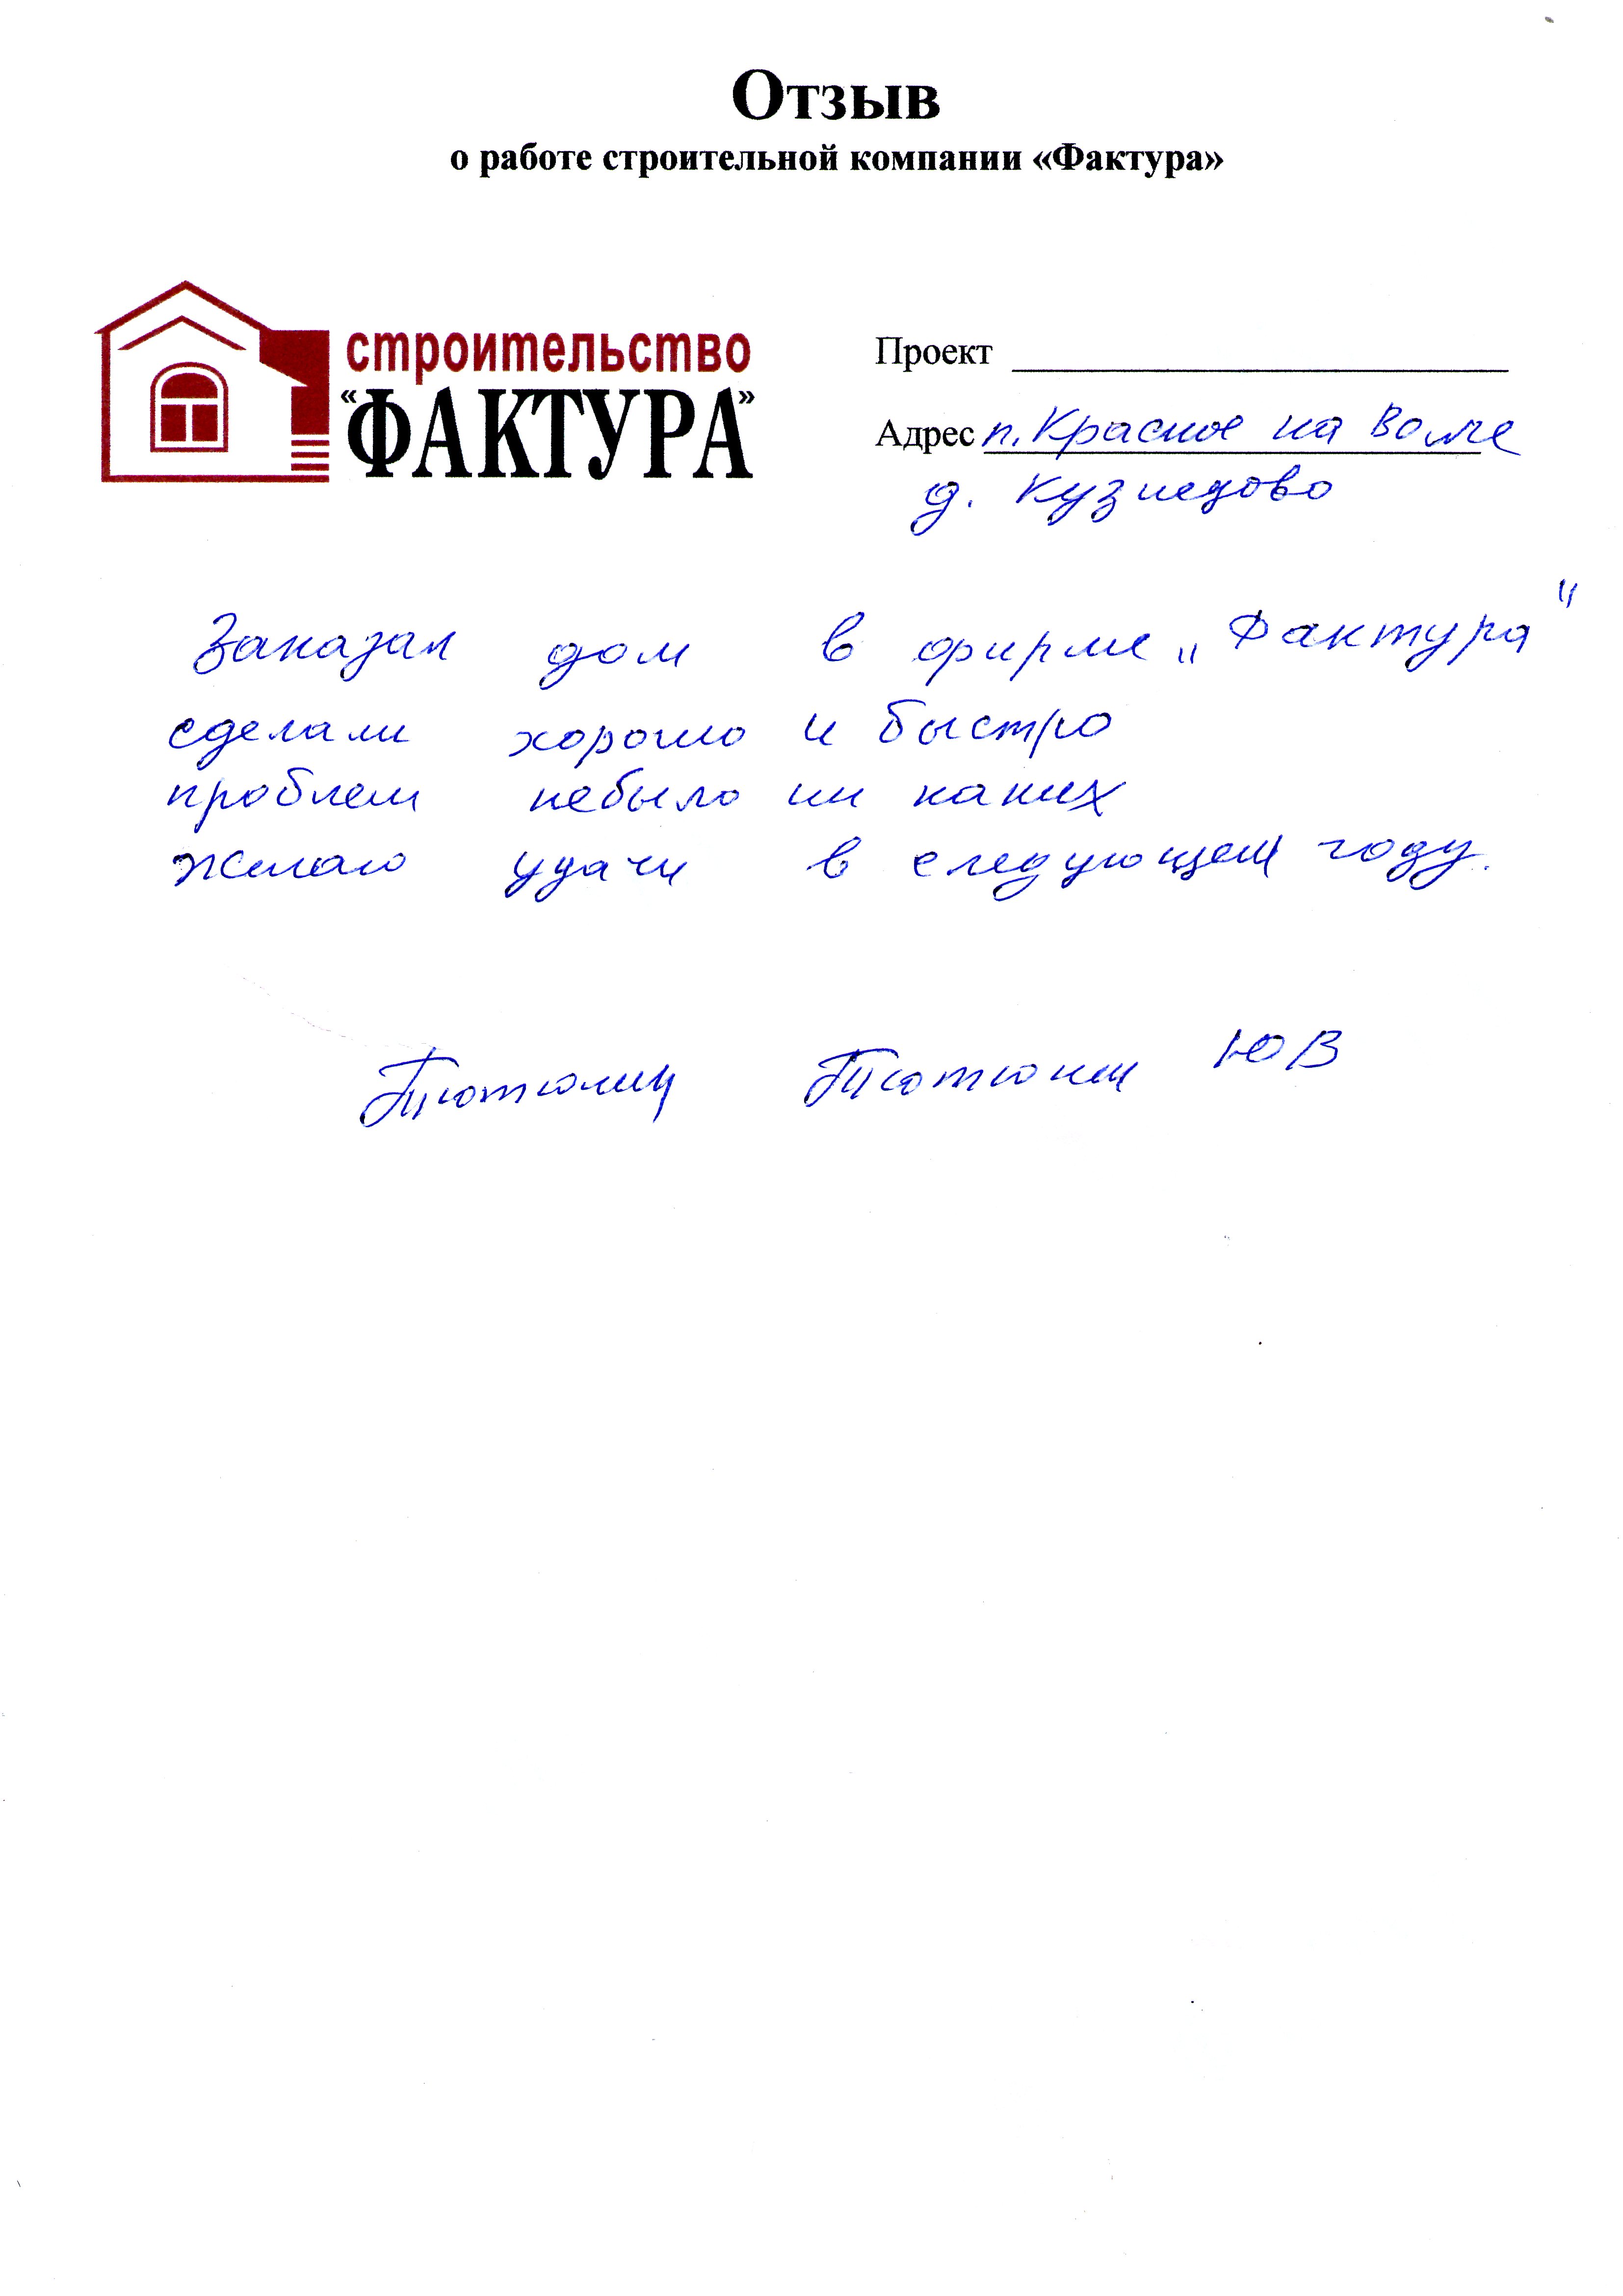 Отзыв
о работе строительной компании «Фактура»
строительство
«ФАКТУРА»
Проект
Адрес п. Красное на Волге
д. Кузнецово
Заказал дом в фирме „Фактура"
сделали хорошо и быстро
проблем небыло ни каких
желаю удачи в следующем году.
Тютюнин ЮВ